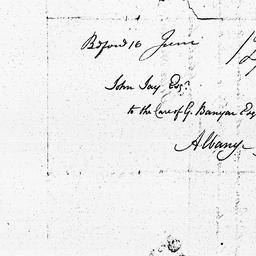 Bedford 16 June
John Jay Esqr
to the Care of G. Banyar Esq
Albany